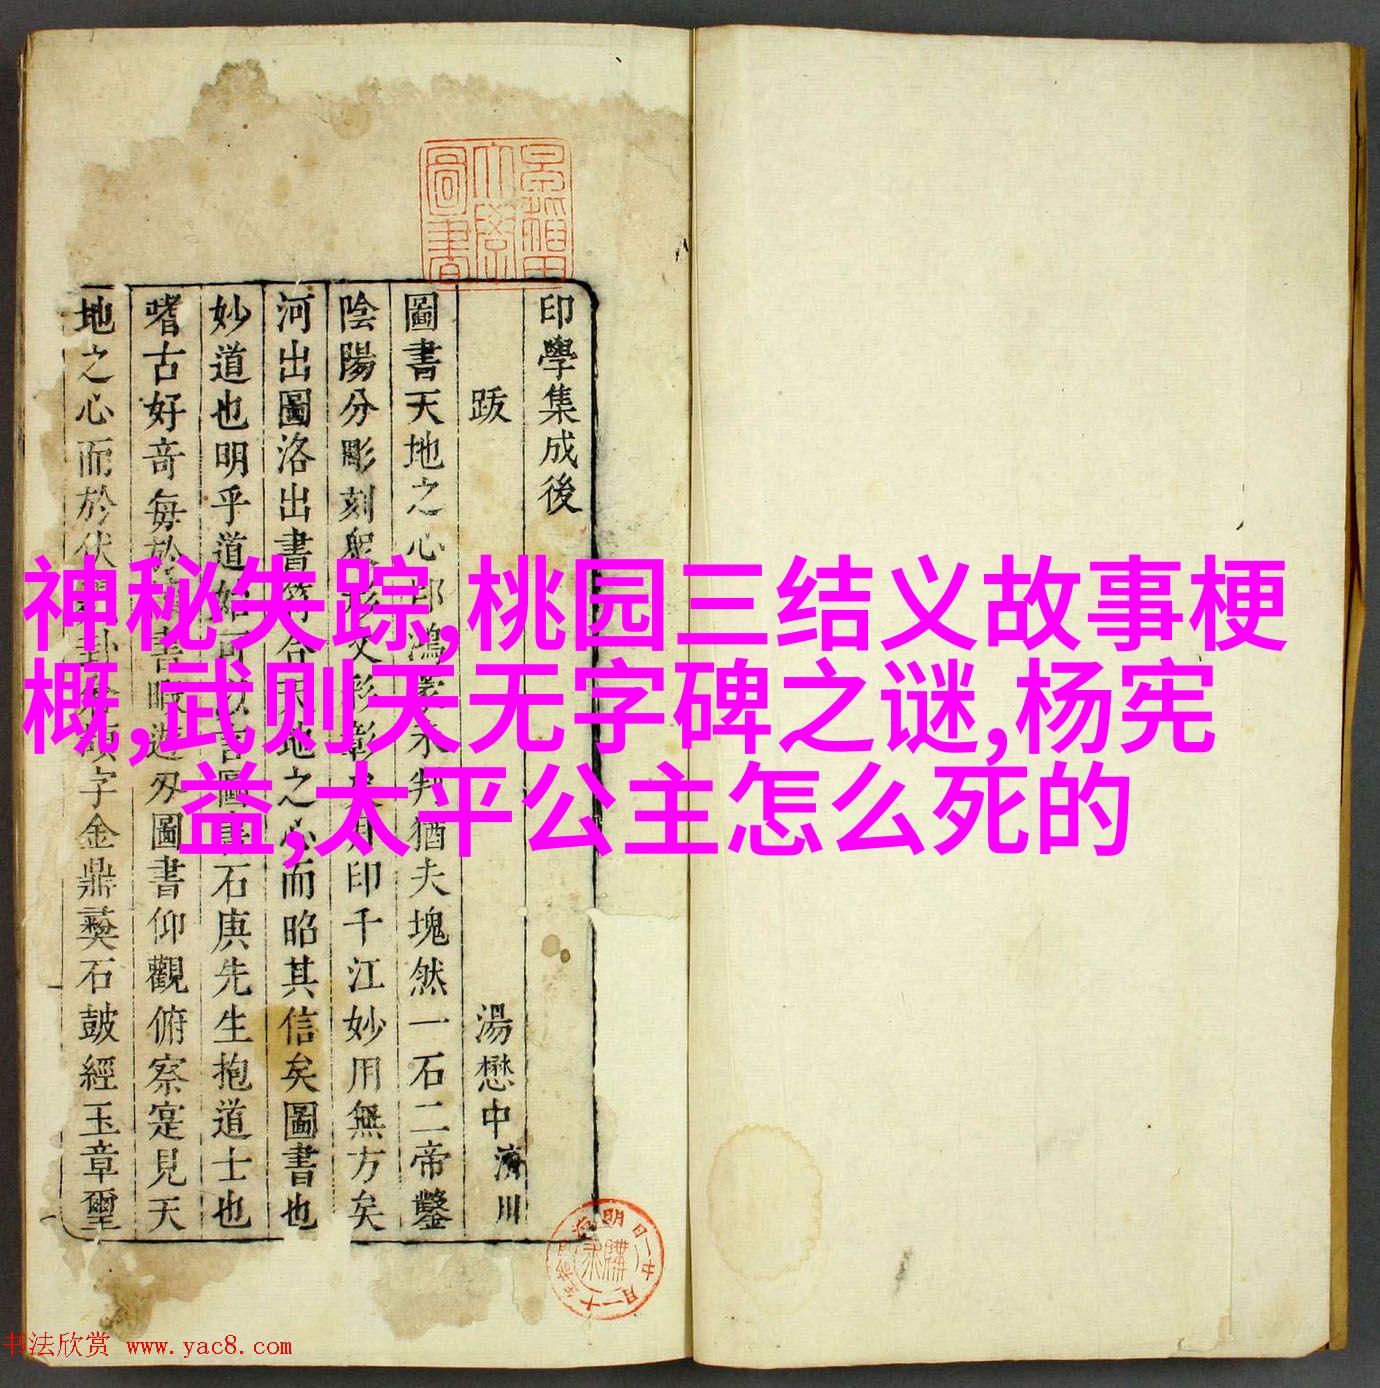 印學集成後
跋
湯懋中濟川
圖書天地之心
鴻濛未判猶夫塊然一石二帝鑿
陰陽分彫刻
印千江妙用無方矣
河出圖洛出書符合天地之心而昭其信矣圖書也
妙道也明乎道
石庚先生抱道士也
嗜古好奇每於
圖書仰觀俯察寔見天
地之心而於伏
字金鼎彝石鼓經玉章璽
神秘失踪,桃园三结义故事梗
概,武则天无字碑之谜,杨宪
益,太平公主怎么死的
书法欣赏 www.yac8.com